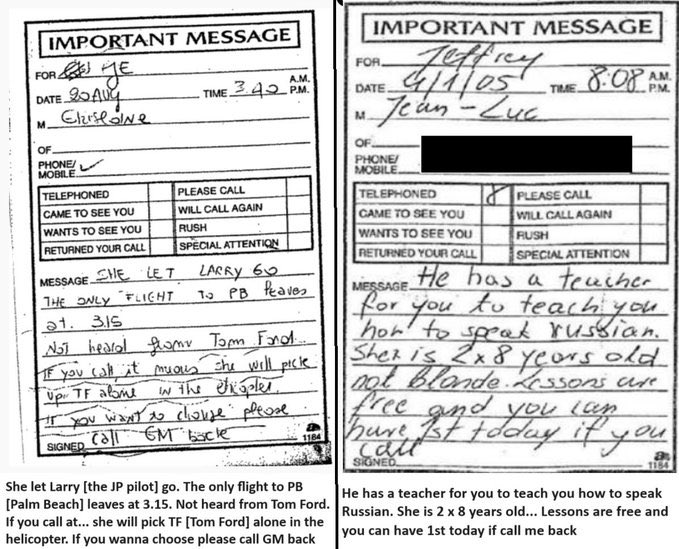 IMPORTANT MESSAGE
FOR JE
DATE 20 AUG TIME 3.40 A.M. P.M.
M
OF
PHONE/ MOBILE
TELEPHONED PLEASE CALL
CAME TO SEE YOU WILL CALL AGAIN
WANTS TO SEE YOU RUSH
RETURNED YOUR CALL SPECIAL ATTENTION
MESSAGE SHE LET LARRY GO
THE ONLY FLIGHT TO PB leaves
at. 315
Not heard from Tom Ford.
If you call it she will pick
up TF alone in the
If you want to please
call GM back
SIGNED
1184
She let Larry [the JP pilot] go. The only flight to PB
[Palm Beach] leaves at 3.15. Not heard from Tom Ford.
If you call at... she will pick TF [Tom Ford] alone in the
helicopter. If you wanna choose please call GM back
IMPORTANT MESSAGE
FOR Jeffrey
DATE 4/1/05 TIME 8:08 A.M. P.M.
M Jean-Luc
OF
PHONE/ MOBILE
TELEPHONED PLEASE CALL
CAME TO SEE YOU WILL CALL AGAIN
WANTS TO SEE YOU RUSH
RETURNED YOUR CALL SPECIAL ATTENTION
MESSAGE He has a teacher
for you to teach you
how to speak russian.
She is 2x8 years old
not blonde. Lessons are
free and you can
have 1st today if you
call
SIGNED
1184
He has a teacher for you to teach you how to speak
Russian. She is 2 x 8 years old... Lessons are free and
you can have 1st today if call me back